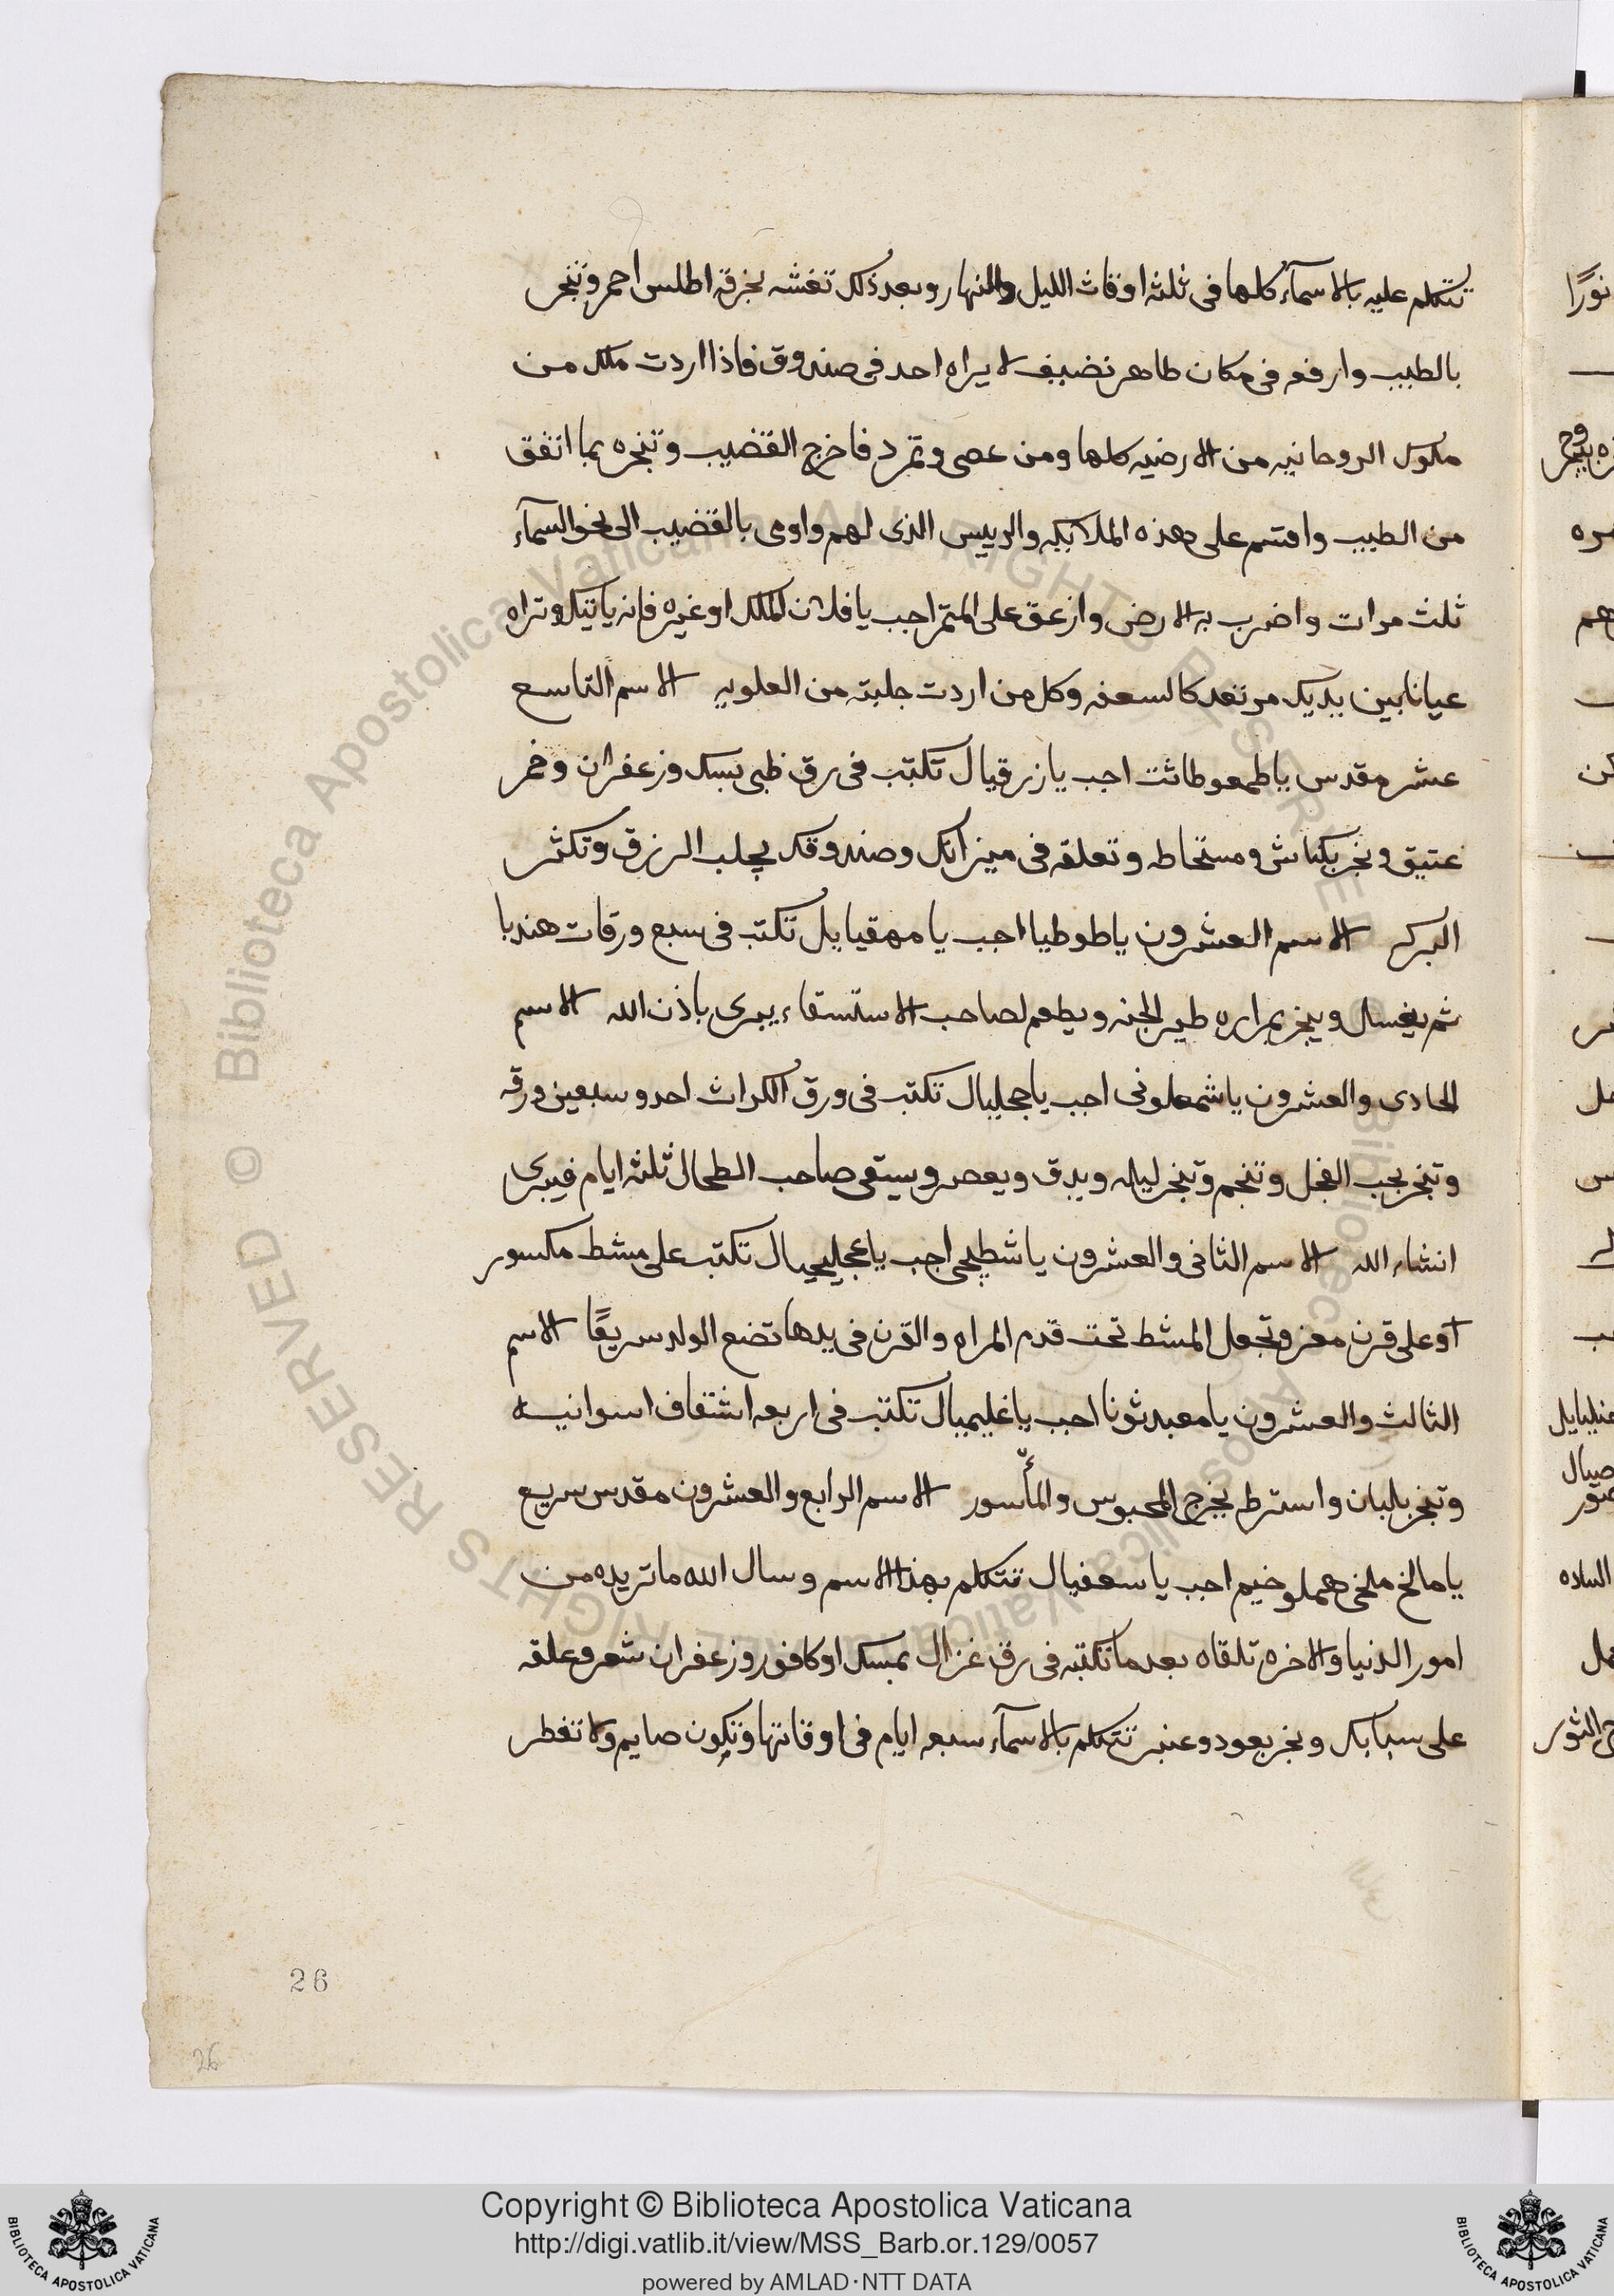 تتكلم عليه بالاسمآء كلها فى ثلثه اوقات الليل والنهار وبعد ذلك تغشه بخرقه اطلس احمر وتبخر
بالطيب وارفعه فى مكان طاهر نضيف لا يراه احد فى صندوق فاذا اردت ملك من
ملوك الروحانيه من الارضيه كلها ومن عصى وتمرد فاخرج القضيب وتبخره بما اتفق
من الطيب واقسم على هذه الملايكه والرييس الذى لهم واومى بالقضيب الى نحو السمآء
ثلث مرات واضرب به الارض وازعق على المتمر اجب يا فلان الملك او غيره فانه ياتيك وتراه
عيانا بين يديك مرتعد كالسعفه وكل من اردت جلبته من العلويه الاسم التاسع
عشر مقدس ياطمعوطاثت اجب يا زرقيال تكتب فى رق ظبى بمسك وزعفران وخمر
عتيق وبخر بكباش ومستحاطه وتعلقه فى ميزانك وصندوقك يجلب الرزق وتكثر
البركه الاسم العشرون ياطوطيا اجب يا مهقيايل تكتب فى سبع ورقات هندبا
ثم يغسال ويبخر بمراره طير الجنه ويطعم لصاحب الاستسقاء يبرى باذن الله الاسم
الحادى والعشرون ياشمعلونى اجب يا جحليال تكتب فى ورق الكراث احد وسبعين ورقه
وتبخر بحب الفجل وتنجم وتبخر ليله ويدق ويعصر ويسقى صاحب الطحال ثلثه ايام فيبرى
انشاء الله الاسم الثانى والعشرون ياشطيحى اجب يا عجلييال تكتب على مشط مكسور
آو على قرن معز وتجعل المشط تحت قدم المراه والقرن فى يدها تضع الولد سريعًا الاسم
الثالث والعشرون يا معبدثونا اجب يا غليميال تكتب فى اربعه اشقاف اسوانيه
وتبخر بلبان واسترط يخرج المحبوس والمأسور الاسم الرابع والعشرون مقدس سريع
يا مالخ ملخى هملوخيم اجب يا سعفيال تتكلم بهذا الاسم وسال الله ما تريده من
امور الدنيا والاخره تلقاه بعد ما تكتبه فى رق غزال بمسك اوكافور وزعفران شعر وعلقه
على سبابك وبخر بعود وعنبر تتكلم بالاسمآء سبعه ايام فى اوقاتها وتكون صايم ولا تفطر
26
26
نورًا
هم
كن
عنليايل
السلاه
الثور
© Biblioteca Apostolica Vaticana ALL RIGHTS RESERVED
Copyright © Biblioteca Apostolica Vaticana
http://digi.vatlib.it/view/MSS_Barb.or.129/0057
powered by AMLAD·NTT DATA
BIBLIOTECA APOSTOLICA VATICANA
BIBLIOTECA APOSTOLICA VATICANA